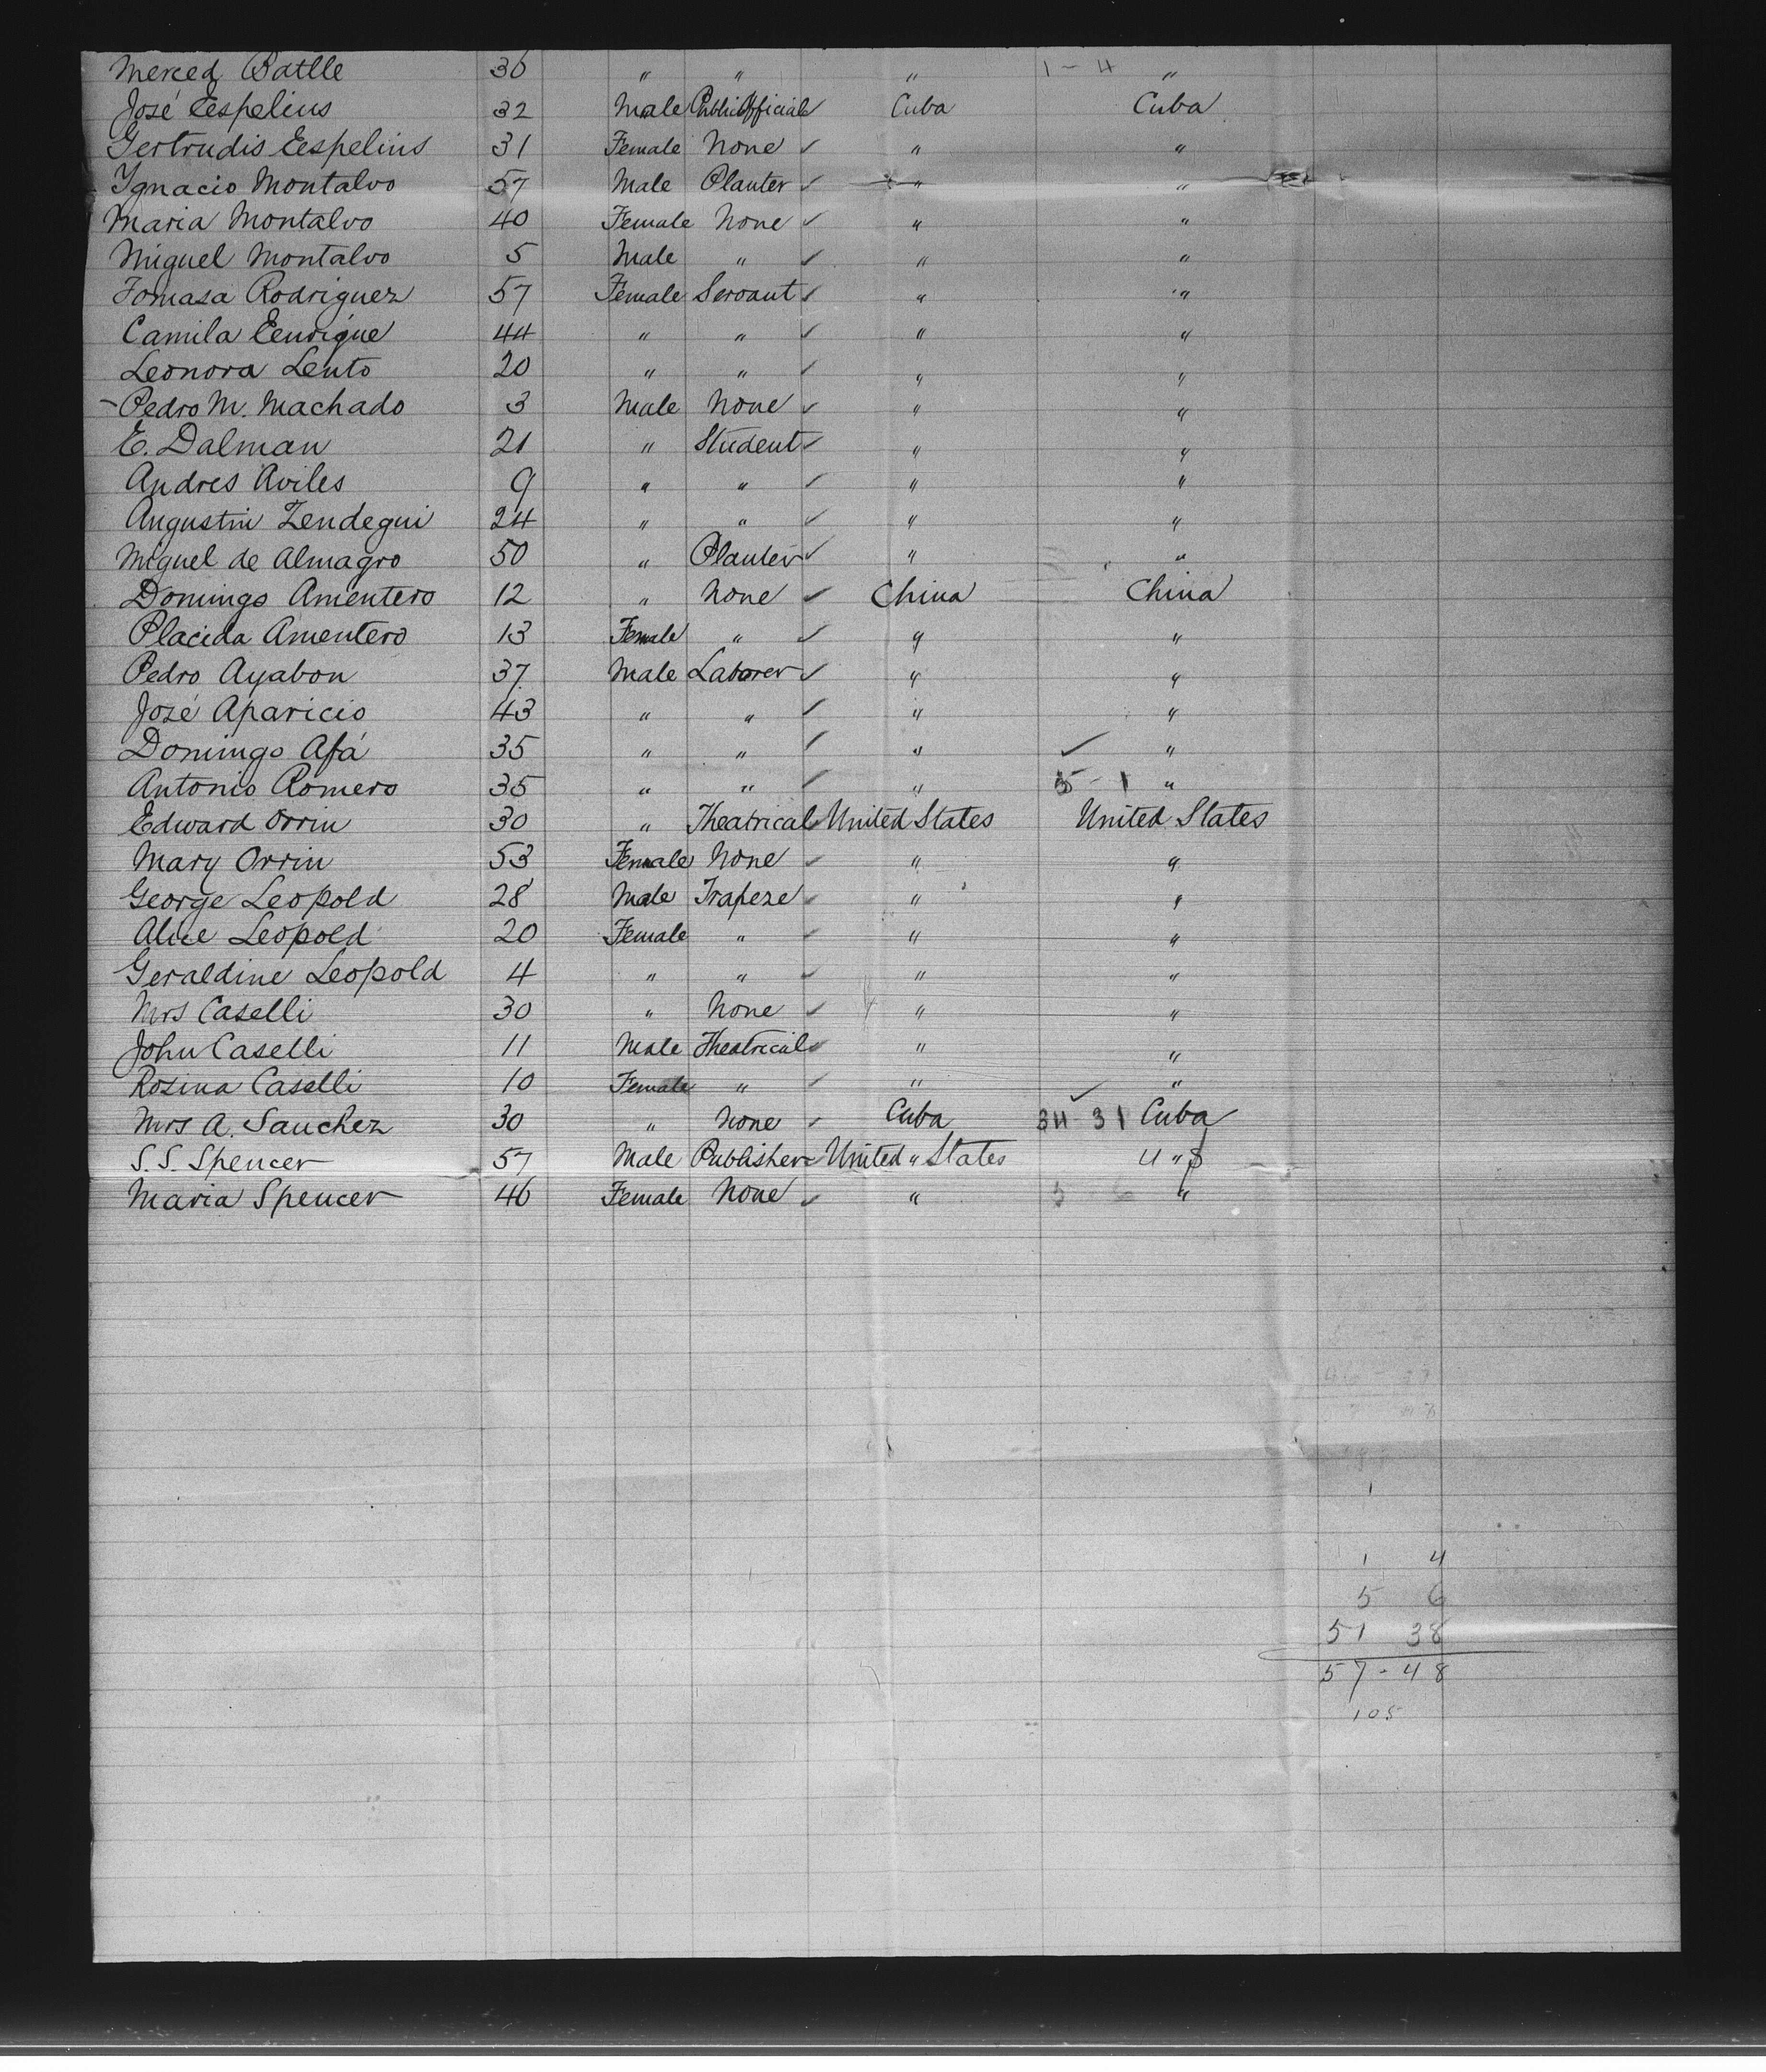 Merced Batlle 36 " " " 1 - 4 "
José Eespelius 32 Male Public Official Cuba Cuba
Gertrudis Eespelius 31 Female None ✓ " "
Ygnacio Montalvo 57 Male Planter ✓ " "
Maria Montalvo 40 Female None ✓ " "
Miguel Montalvo 5 Male " ✓ " "
Tomasa Rodriguez 57 Female Servant ✓ " "
Camila Eenrique 44 " " ✓ " "
Leonora Lento 20 " " ✓ " "
- Pedro M. Machado 3 Male None ✓ " "
E. Dalman 21 " Student ✓ " "
Andres Aviles 9 " " ✓ " "
Augustin Zendegui 24 " " ✓ " "
Miguel de Almagro 50 " Planter ✓ " "
Domingo Amentero 12 " None ✓ China China
Placida Amentero 13 Female " ✓ " "
Pedro Ayabon 37 Male Laborer ✓ " "
José Aparicio 43 " " ✓ " "
Domingo Afá 35 " " ✓ " ✓ "
Antonio Romero 35 " " ✓ " 5 - 1 "
Edward Orrin 30 " Theatrical United States United States
Mary Orrin 53 Female None ✓ " "
George Leopold 28 Male Trapeze ✓ " "
Alice Leopold 20 Female " ✓ " "
Geraldine Leopold 4 " " ✓ " "
Mrs Caselli 30 " None ✓ " "
John Caselli 11 Male Theatrical ✓ " "
Rosina Caselli 10 Female " ✓ " ✓ "
Mrs A. Sanchez 30 " None ✓ Cuba 34 - 31 Cuba
S. S. Spencer 57 Male Publisher United " States U " S
Maria Spencer 46 Female None ✓ " 6 "
1
1 4
5 6
51 38
57 - 48
105